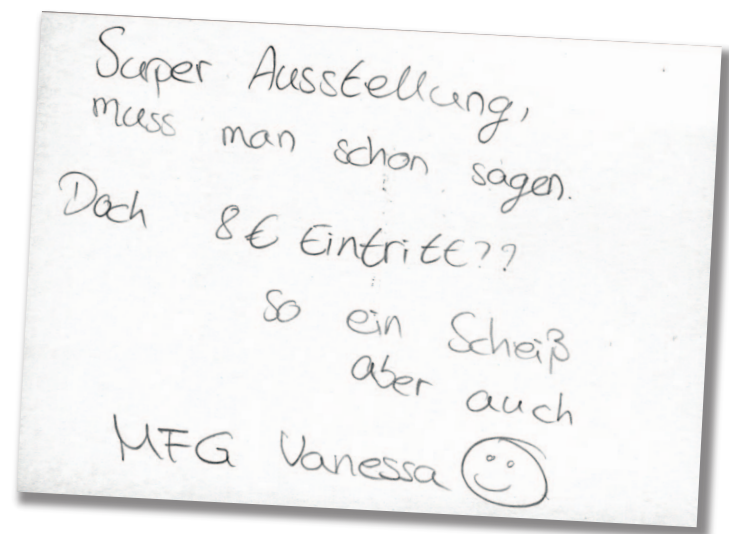 Super Ausstellung,
muss man schon sagen.
Doch 8€ Eintritt??
so ein Scheiß
aber auch
MFG Vanessa